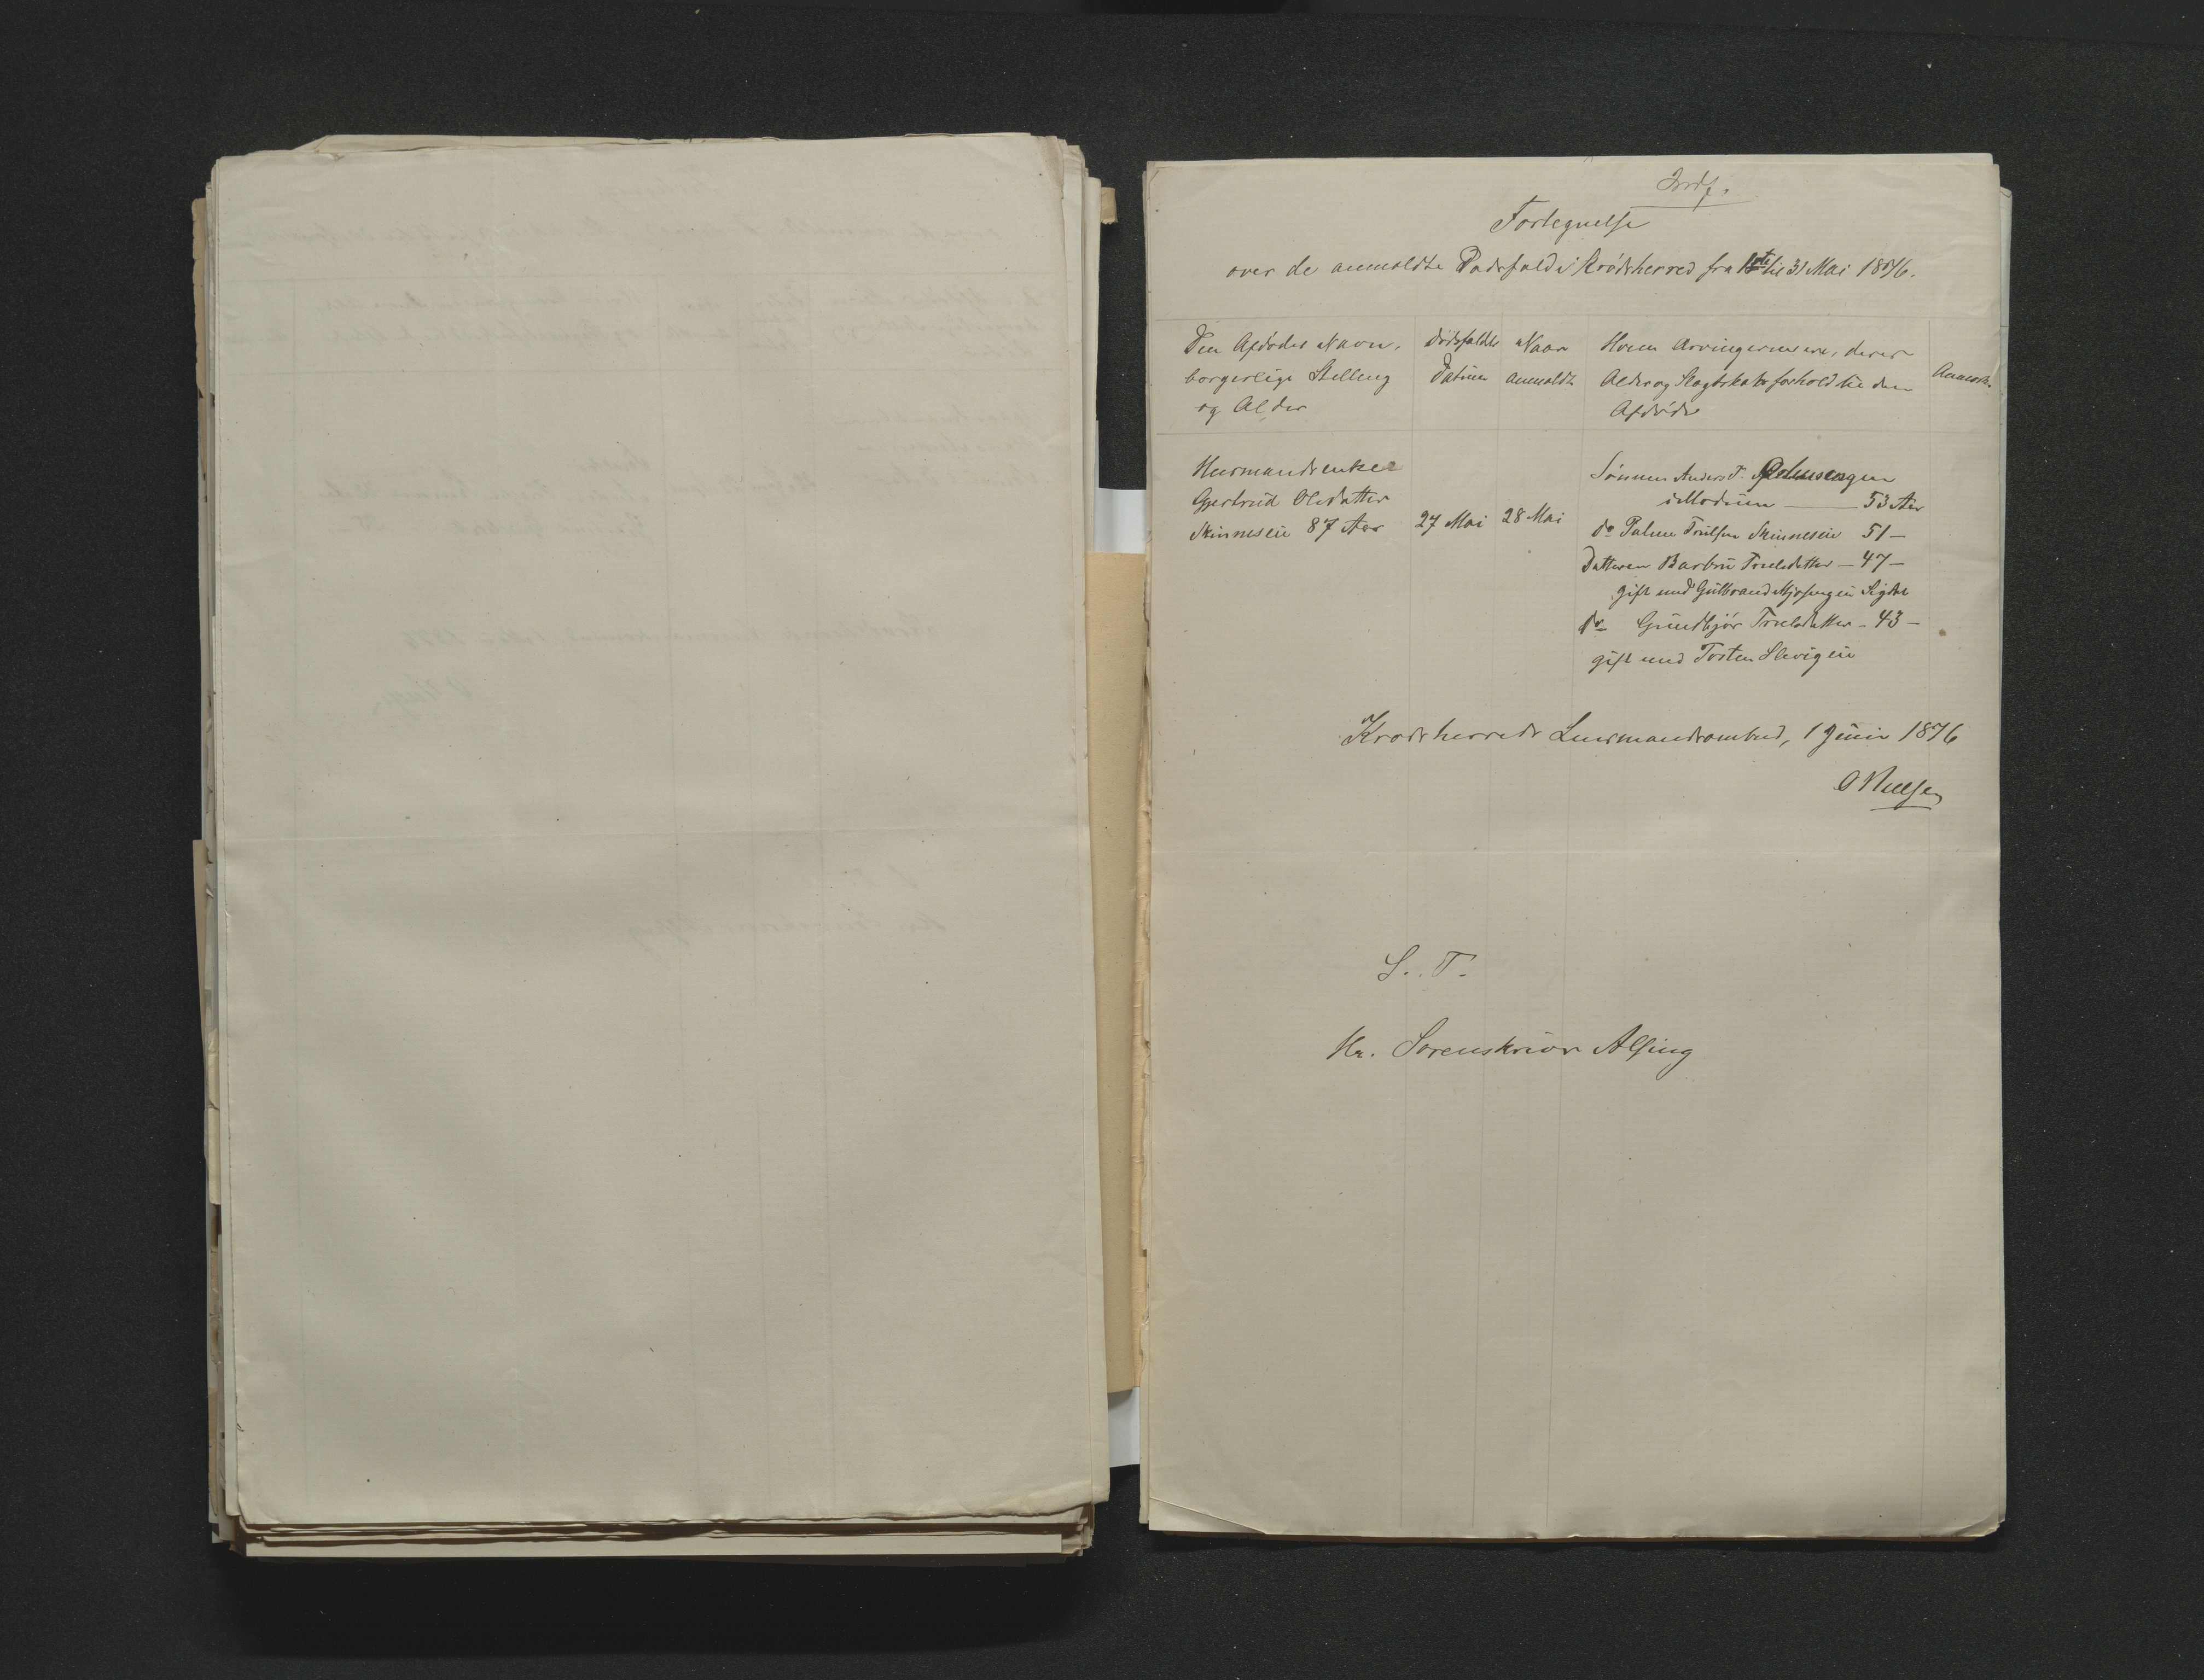 Indf.
Fortegnelse
over de anmeldte Dødsfald i Krødsherred fra til 31 Mai 1876.
Den Afdødes Navn,
borgerlige Stilling
og Alder
Dødsfaldets
Datum
Naar
anmeldt
Hvem Arvingerne ere, deres
Alder og Slægtskabsforhold til den
Afdøde
Anmærk.
Huusmandsenke
Gjertrud Olsdatter
Skinneseie 87 Aar
27 Mai
28 Mai
Sønnen Anders T.
i Modum — 53 Aar
do Palme Trulsen Skinneseie 51 —
Datteren Barbro Truelsdatter — 47 —
gift med Gulbrand Sigdal
do Gundbjør Truelsdatter - 43 —
gift med Torsten Slevigeie
Krødsherreds Lensmandsombud, 1 Juni 1876
O Nielsen
S. T.
Hr. Sorenskriver Alsing